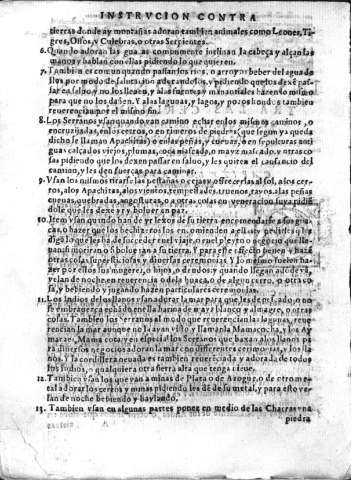 INSTRUCION CONTRA
tierras donde ay montañas adoran tambien animales como Leones, Ti-
gres, Ossos, y Culebras, o otras Serpientes.
6. Quando adoran las guacas comunmente inclinan la cabeça y alçan las
manos y hablan con ellas pidiendo lo que quieren.
7. Tambien es comun quando passan los rios, o arroyos beber del agua de
llos por modo de saludarlos adorandolos, y pidiendo que los dexe pas-
sar en saluo y no los lleuen, y a las fuentes y manantiales hazen lo mismo
para que no los dañen. Y a las lagunas, y lagos, y poços hondos tambien
reuerencian por el mismo fin.
8. Los Serranos vsan quando van camino echar en los mismos caminos, o
encruzijadas, en los cerros, o en rimeros de piedras (que segun ya queda
dicho se llaman Apachitas) o en las peñas, y cueuas, o en sepulturas anti
guas calçados viejos, plumas, coca mascada, o mayz mascado, y otras co-
sas pidiendo que los dexen passar en saluo, y les quiten el cansancio del
camino, y les den fuerças para caminar.
9. Vsan los mismos tirarse las pestañas o cejas, y ofrecerlas al sol, a los cer-
ros, a los Apachitas, a los vientos, tempestades, truenos, rayos, a las peñas
cueuas, quebradas, angosturas, o a otras cosas en veneracion suya pidien
dole que les dexe yr y boluer en paz.
10. Item vsan quando han de yr lexos de su tierra
cas, o hazer que los hechizeros los en
digo lo que les ha de succeder en el viaje, o en el pleyto o negocio que lle-
uan
otras cosas supersticiosas, y diuersas ceremonias. Y lo mismo suelen ha-
zer por ellos sus mugeres, o hijos, o deudos: y quando llegan adonde van,
velan de noche en reuerencia o de la huaca, o de algun cerro, o otra co
sa, y bebiendo y jugando hazen particulares ceremonias.
11. Los Indios de los llanos vsan adorar la mar para que les de pescado, o no
se embrauezca echandole harina de mayz blanco y almagre, o otras
cosas. Tambien los Serranos al modo que reuerencian las lagunas, reue-
rencian la mar aunque no la ayan visto y llamanla Mamacocha, y los Ay
maraes, Mama cota y en especial los Serranos que baxan a los llanos pa-
ra diuersos negocios adoran la mar con differentes ceremonias, y los
llanos. Y la cordillera neuada es tambien reuerenciada y adorada de todos
los indios, o qualquiera otra sierra alta que tenga nieue.
12. Tambien vsan los que van a minas de Plata o de Azogue, o de otro me-
tal adorar los cerros y minas pidiendoles de de su metal, y para esto ve-
lan de noche bebiendo y baylando.
13. Tambien vsan en algunas partes poner en medio de las Chacras vna
piedra